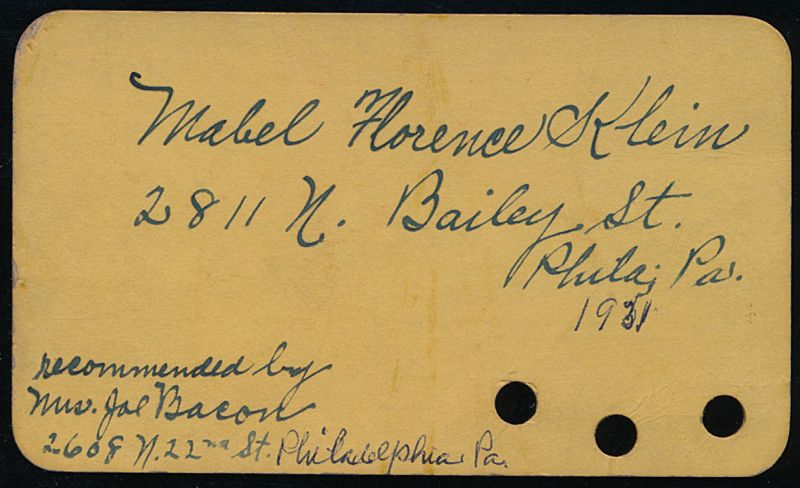 Mabel Florence Klein
2811 N. Bailey St.
Phila; Pa.
1931
recommended by
Mrs. Joe Bacon
2608 N. 22nd St. Philadelphia Pa.